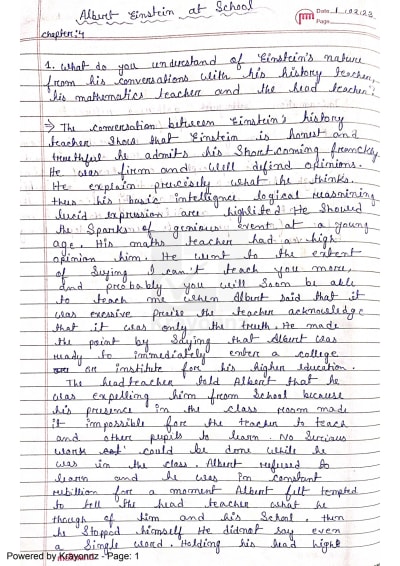 Albert Einstein at School
Date 1.02.23
Page
chapter:4
1. What do you understand of Einstein's nature
from his conversations with his history teacher,
his mathematics teacher and the head teacher?
→ The conversation between Einstein's history
teacher Shows that Einstein is honest and
truthful he admits his Short coming franckly.
He was firm and well defind opinions.
He explain precisely what he thinks.
thus his basic intelligence logical reasnining
lucid expression are highlited He Showed
the Sparks of genious event at a young
age. His maths teacher had a high
opinion him. He went to the extent
of Suying I can't teach you more,
and probably you will Soon be able
to teach me when Albert said that it
was exessive preise the teacher acknowledge
that it was only the truth. He made
the point by Saying that Albert was
ready to immediately enter a college
or an institute for his higher education.
The head teacher told Albert that he
was expelling him from School because
his presence in the class room made
it impossible for the teacher to teach
and other pupils to learn. No Surious
work could be done while he
was in the class. Albert refused to
learn and he was in constant
rebillion for a moment Albert felt tempted
to tell the head teacher what he
though of him and his School. then
he Stopped himself He didnot say even
a Single word. Holding his head hight
Powered by Krayonnz - Page: 1